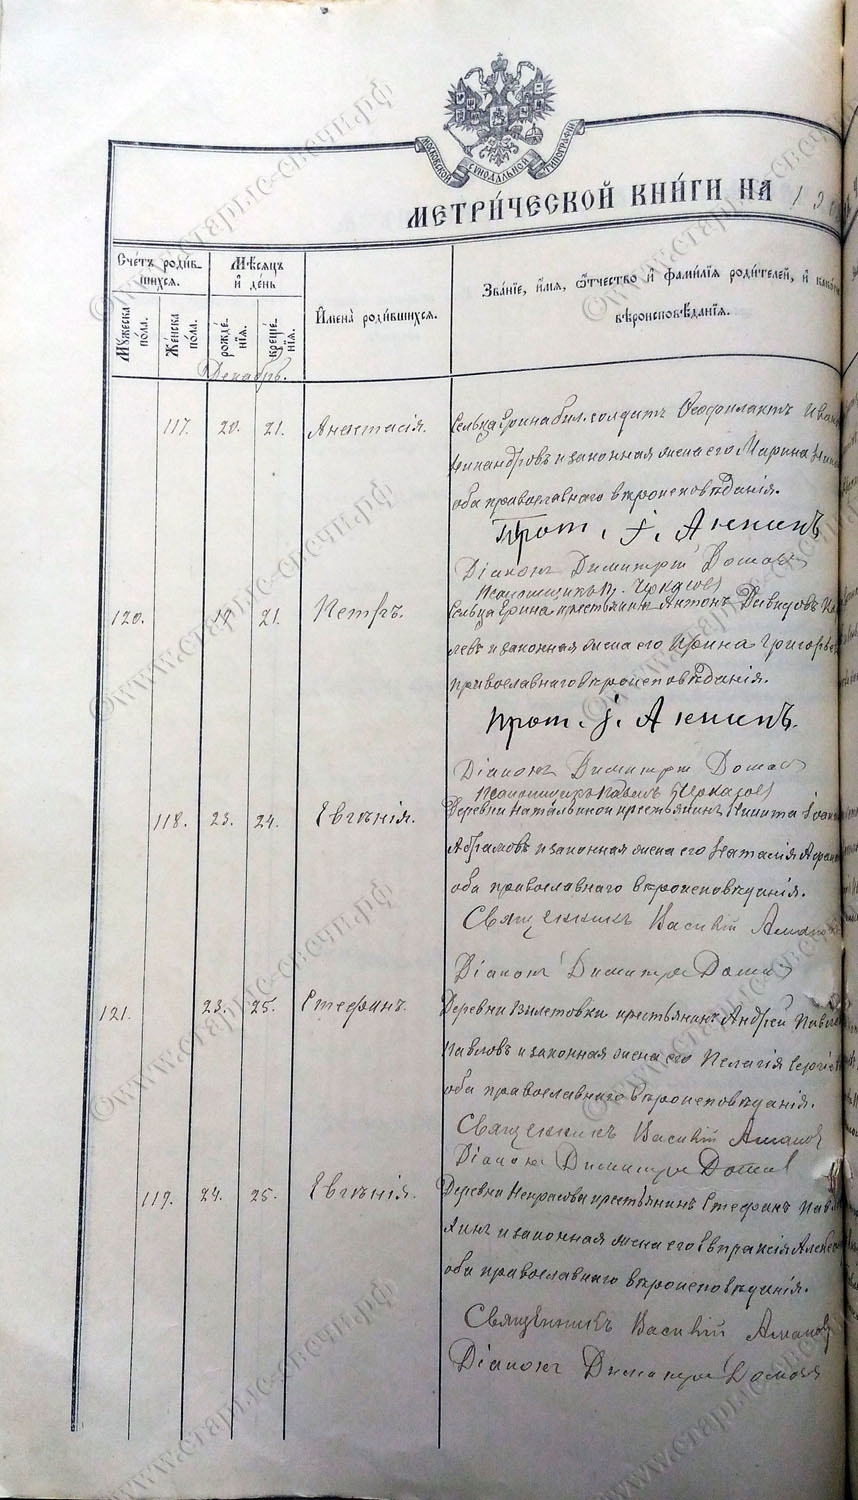 МОСКОВСКОЙ СѴНОДАЛЬНОЙ ТИПОГРАФІИ
МЕТРИ́ЧЕСКОЙ КНИ́ГИ НА 19
Сче́тъ роди́вшихся.
Мѣ́сяцъ и де́нь
Му́жеска по́ла.
Же́нска по́ла.
рожде́нія.
креще́нія.
Имена̀ роди́вшихся.
Зва́ніе, и́мя, ѻ҆́тчество и҆ фами́лія роди́телей, и҆ како́
вѣроисповѣ́данія.
Декабрь.
117. 20. 21. Анастасія. Сельца Ерина бил. солдатъ Ѳеофилактъ Ива
Никандровъ и законная жена его Марина
оба православнаго вѣроисповѣданія.
Прот. І. Аннинъ
Діаконъ Димитрій
Псаломщикъ П. Черкасов
120. 17. 21. Петръ. Сельца Ерина крестьянинъ Антонъ Давидовъ
левъ и законная жена его Ирина Григорье
православнаго вѣроисповѣданія.
Прот. І. Аннинъ.
Діаконъ Димитрій
Псаломщикъ Павелъ Черкасов
118. 23. 24. Евгѣнія. Деревни Натальиной крестьянинъ Никита Іоан
Абрамовъ и законная жена его Наталія
оба православнаго вѣроисповѣданія.
Священникъ Василій
Діаконъ Димитрій
121. 23. 25. Стефанъ. Деревни крестьянинъ Андрей Павло
Павловъ и законная жена его Пелагія Сергіе
оба православнаго вѣроисповѣданія.
Священникъ Василій
Діаконъ Димитрій
119. 24. 25. Евгѣнія. Деревни Некрасова крестьянинъ Стефанъ Пав
кинъ и законная жена его Евпраксія Алексѣе
оба православнаго вѣроисповѣданія.
Священникъ Василій
Діаконъ Димитрій
©www.старые-свечи.рф